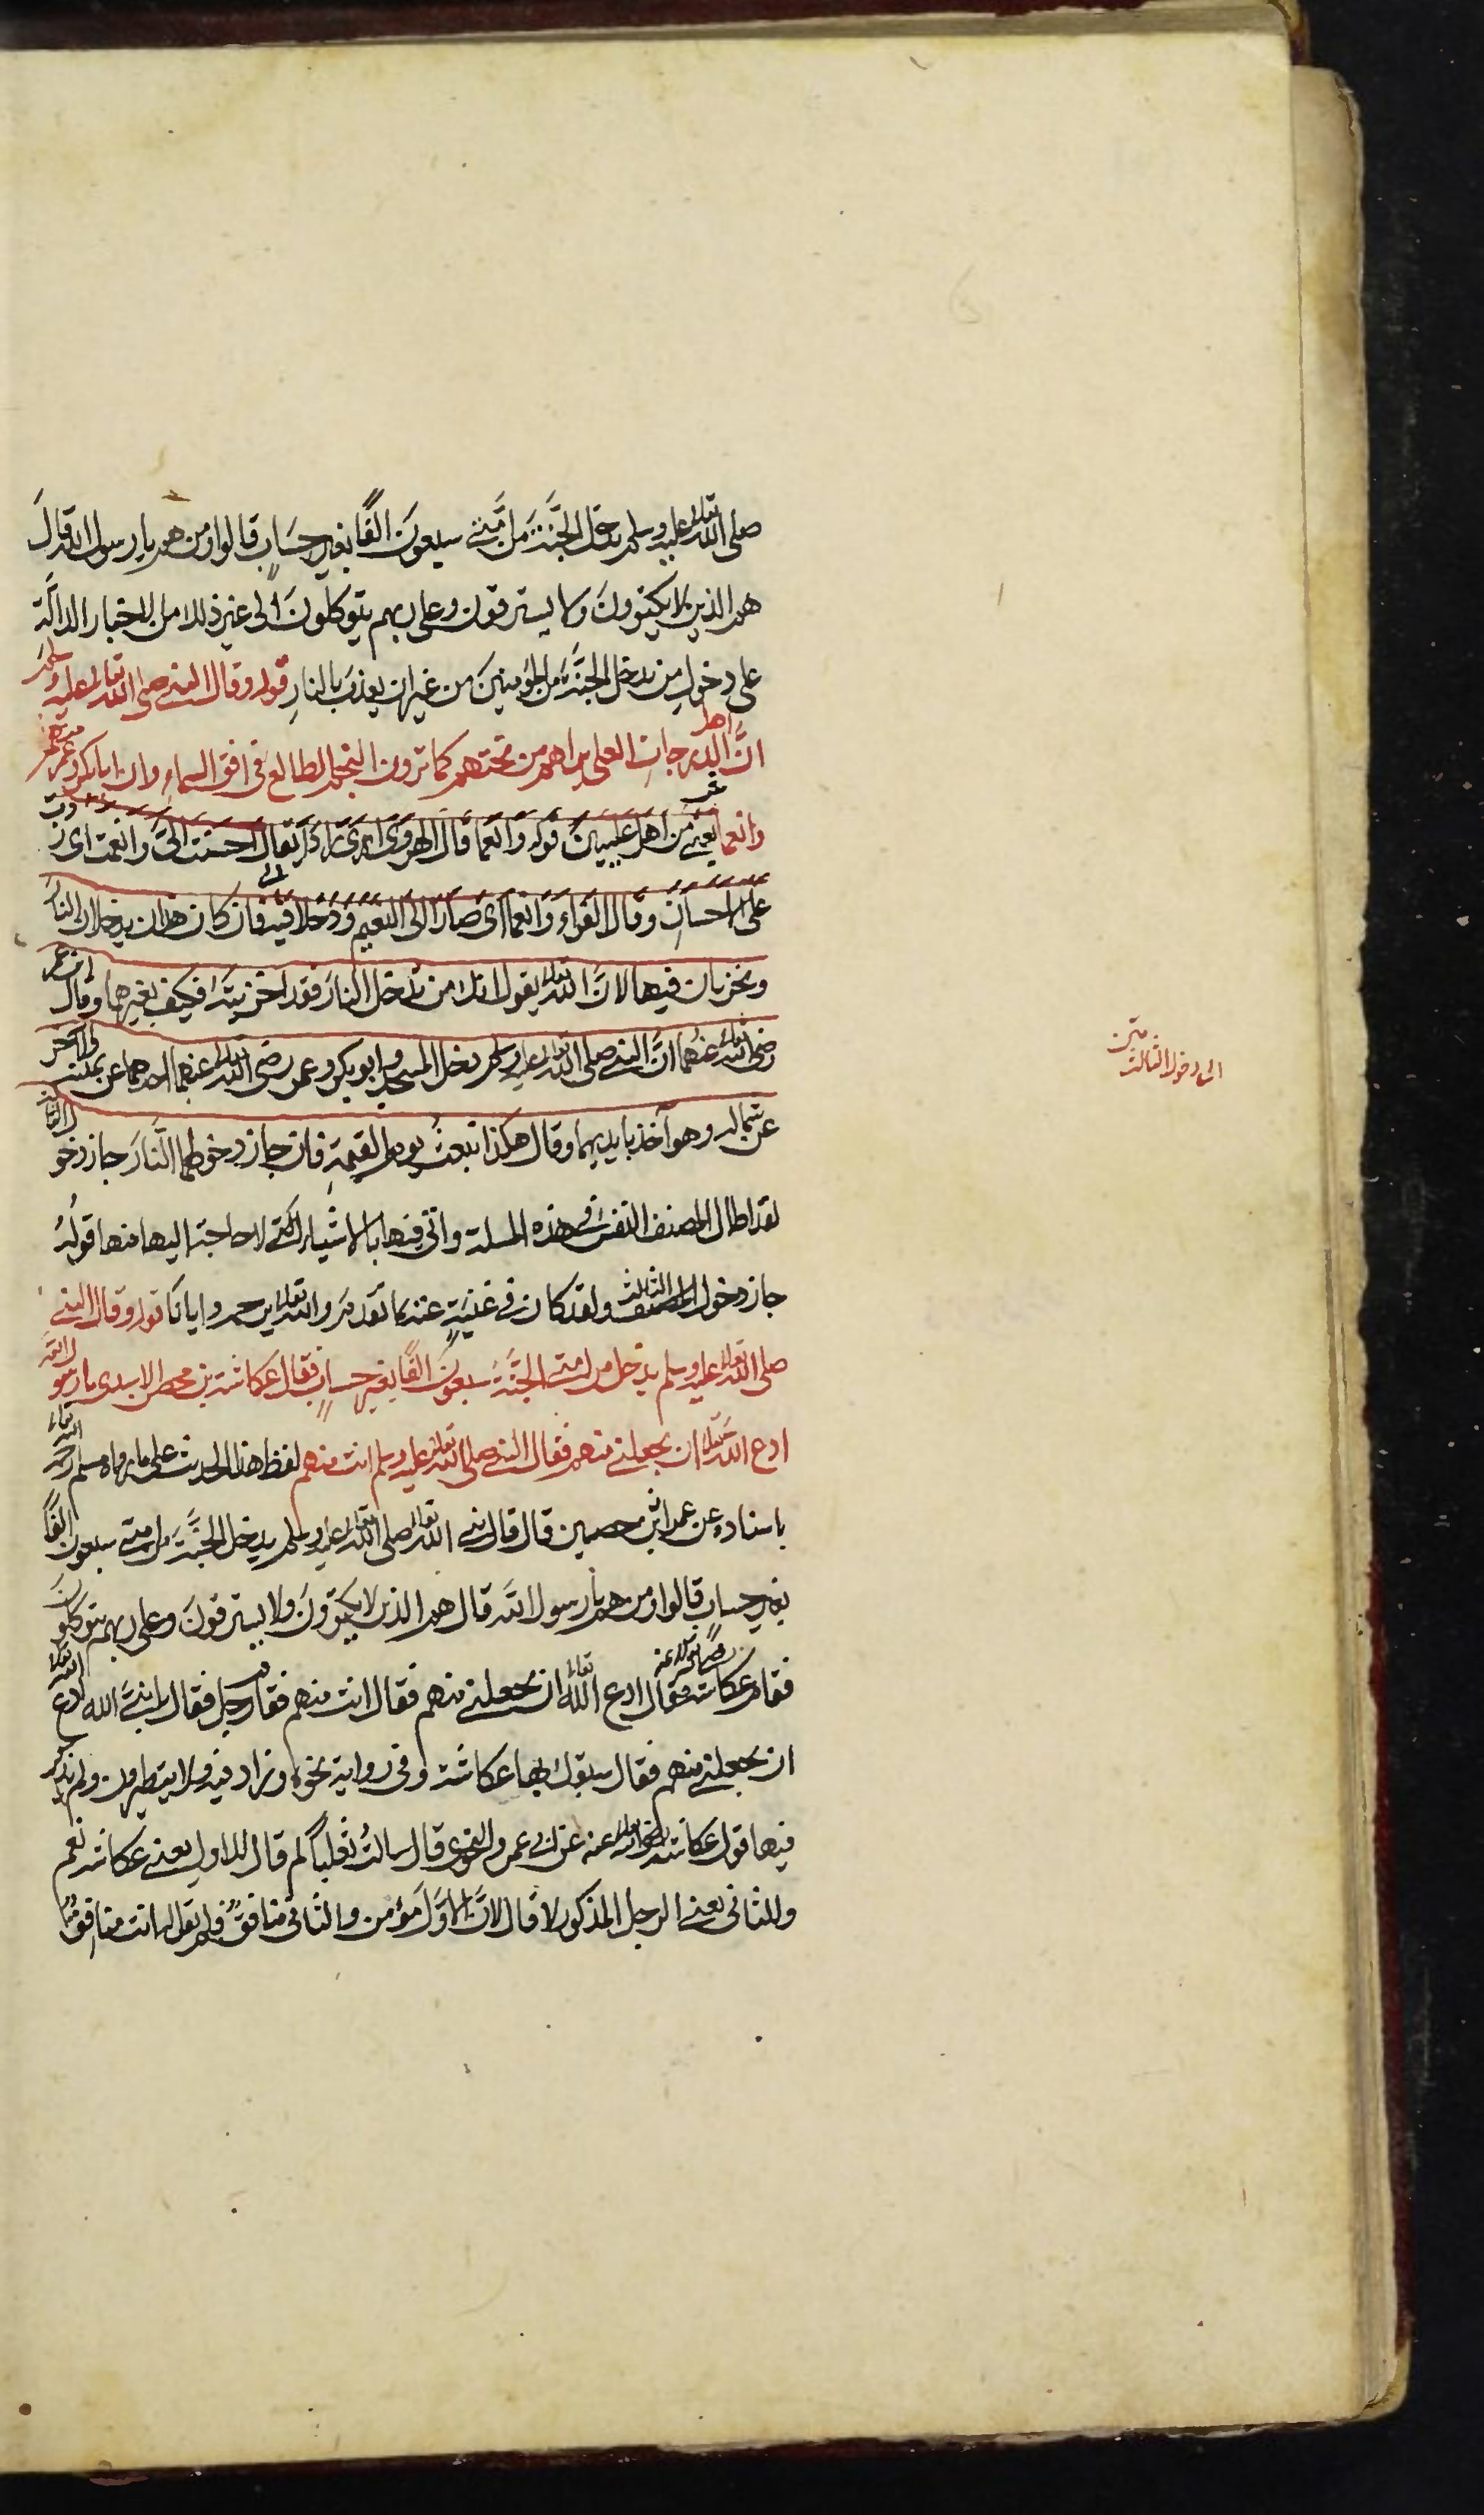 صلى الله تعالى عليه وسلم يدخل الجنَّةَ من اُمَّتي سبعونَ الفًا بغير حسَابٍ قالوا ومن هم يا رسول الله قالَ
هم الذين لا يكتوونَ ولا يسترقون وعلى ربهم يتوكلونَ الى غير ذلك من الاخبار الدالَّة
على دخولِ من يدخل الجنَّةَ من المؤمنينَ من غير ان يعذبَ بالنارِ قوله وقال النبي صلى الله تعالى عليه وسلم
انَّ اهل الدرجاتِ العلى يراهم من تحتهم كما ترون النجم الطالع في افق السماءِ وان ابا بكر وعمر منهم
وانعما يعني من اهل عليينَ قوله وانعما قال الهروى اى زادَ يقال احسنت الىَّ وانعمت اى زدت
على الاحسان وقال الفراء وانعما اى صارا الى النعيم ودخلا فيه فان كان هذان يدخلان النار
ويخزيان فيها لانَّ الله تعالى يقول انك من تدخل النارَ فقد اخزيتَه فكيف بغيرهما وقال ابن عمر
رضى الله تعالى عنهما انَّ النبي صلى الله تعالى عليه وسلم دخل المسجد وابو بكر وعمر رضى الله تعالى عنهما احدهما عن يمينه والآخر
عن شماله وهو آخذ بايديهما وقال هكذا نبعثُ يوم القيمةِ فان جاز دخولهما النَّارَ جاز دخول الثالث
لقد اطال المصنف النفسَ في هذه المسلة واتى فيها بالاشياء التى لا حاجة اليها منها قولُهُ
جاز دخول الثالث ولقد كان في غنيةٍ عنه بما تقدم والله تعالى يرحمه وايانا قوله وقال النبي
صلى الله تعالى عليه وسلم يدخل من امتي الجنَّةَ سبعونَ الفًا بغير حسابٍ فقال عكاشة بن محصن الاسدى يا رسول الله
ادع الله تعالى ان يجعلني منهم فقال النبي صلى الله تعالى عليه وسلم انت منهم لفظ هذا الحديث على ما رواه مسلم رحمه الله تعالى
باسناده عن عمران بن حصين قال قال نبي الله تعالى صلى الله تعالى عليه وسلم يدخل الجنَّةَ من امتي سبعون الفًا
بغير حسابٍ قالوا ومن هم يا رسول الله قال هم الذين لا يكتوونَ ولا يسترقونَ وعلى ربهم يتوكلونَ
فقام عكاشة رضى الله عنه فقال ادع الله تعالى ان يجعلني منهم فقال انت منهم فقام رجل فقال يا نبيَّ الله ادع الله تعالى
ان يجعلني منهم فقال سبقك بها عكاشة وفى رواية نحوه وزاد فيه ولا يتطيرون ولم يذكر
فيها قول عكاشة رضى الله تعالى عنه عن ابى عمر والنحوى قال سالتُ ثعلبًا لم قال للاولِ يعنى عكاشه نعم
وللثانى يعنى الرجل المذكور لا قال لانَّ الاوَّلَ مؤمن والثانى منافقٌ فلم يقل له انت منافق
الى دخولا الثالث